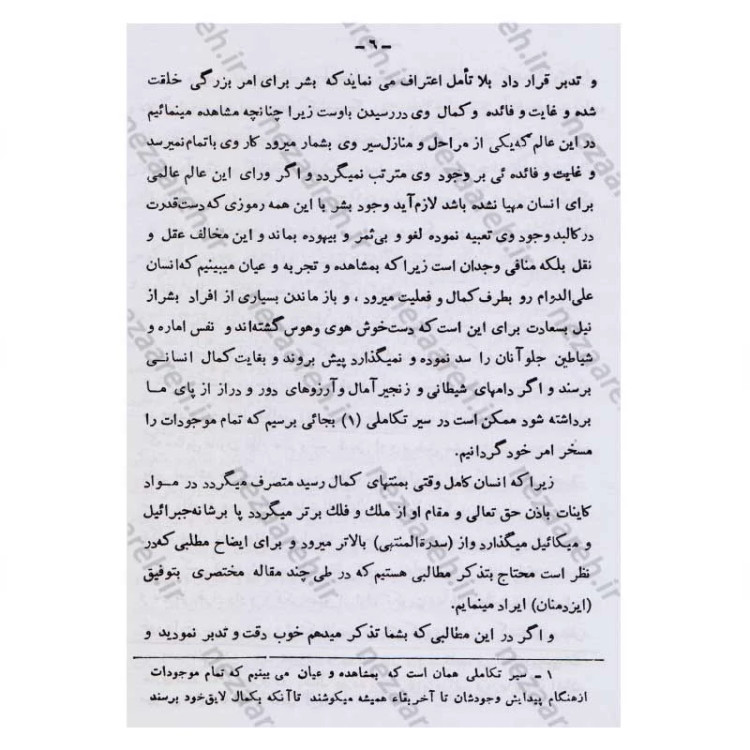 -٦-
و تدبر قرار داد بلا تأمل اعتراف می نماید که بشر برای امر بزرگی خلقت
شده و غایت و فائده و کمال وی در رسیدن باوست زیرا چنانچه مشاهده مینمائیم
در این عالم که یکی از مراحل و منازل سیر وی بشمار میرود کار وی باتمام نمیرسد
و غایت و فائده ئی بر وجود وی مترتب نمیگردد و اگر ورای این عالم عالمی
برای انسان مهیا نشده باشد لازم آید وجود بشر با این همه رموزی که دست قدرت
در کالبد وجود وی تعبیه نموده لغو و بی ثمر و بیهوده بماند و این مخالف عقل و
نقل بلکه منافی وجدان است زیرا که بمشاهده و تجربه و عیان میبینیم که انسان
علی الدوام رو بطرف کمال و فعلیت میرود ، و باز ماندن بسیاری از افراد بشر از
نیل بسعادت برای این است که دست خوش هوی وهوس گشته اند و نفس اماره و
شیاطین جلو آنان را سد نموده و نمیگذارد پیش بروند و بغایت کمال انسانی
برسند و اگر دامهای شیطانی و زنجیر آمال و آرزوهای دور و دراز از پای ما
برداشته شود ممکن است در سیر تکاملی (۱) بجائی برسیم که تمام موجودات را
مسخر امر خود گردانیم.
زیرا که انسان کامل وقتی بمنتهای کمال رسید متصرف میگردد در مواد
کاینات باذن حق تعالی و مقام او از ملك و فلك برتر میگردد پا برشانه جبرائیل
و میکائیل میگذارد واز (سدرة المنتهی) بالاتر میرود و برای ایضاح مطلبی که در
نظر است محتاج بتذکر مطالبی هستیم که در طی چند مقاله مختصری بتوفیق
(ایزدمنان) ایراد مینمایم.
و اگر در این مطالبی که بشما تذکر میدهم خوب دقت و تدبر نمودید و
۱ - سیر تکاملی همان است که بمشاهده و عیان می بینیم که تمام موجودات
از هنگام پیدایش وجودشان تا آخر بقاء همیشه میکوشند تا آنکه بکمال لایق خود برسند
nezaareh.ir